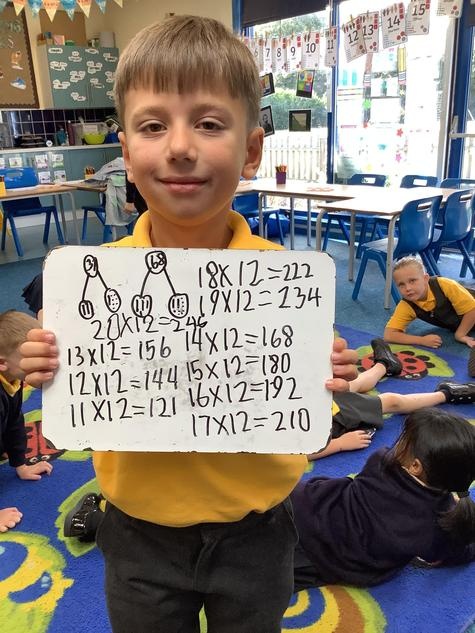 18x12=222
19x12=234
20x12=246
13x12=156
12x12=144
11x12=121
14x12=168
15x12=180
16x12=192
17x12=210
7 8 9 10 11 12 13 14 15